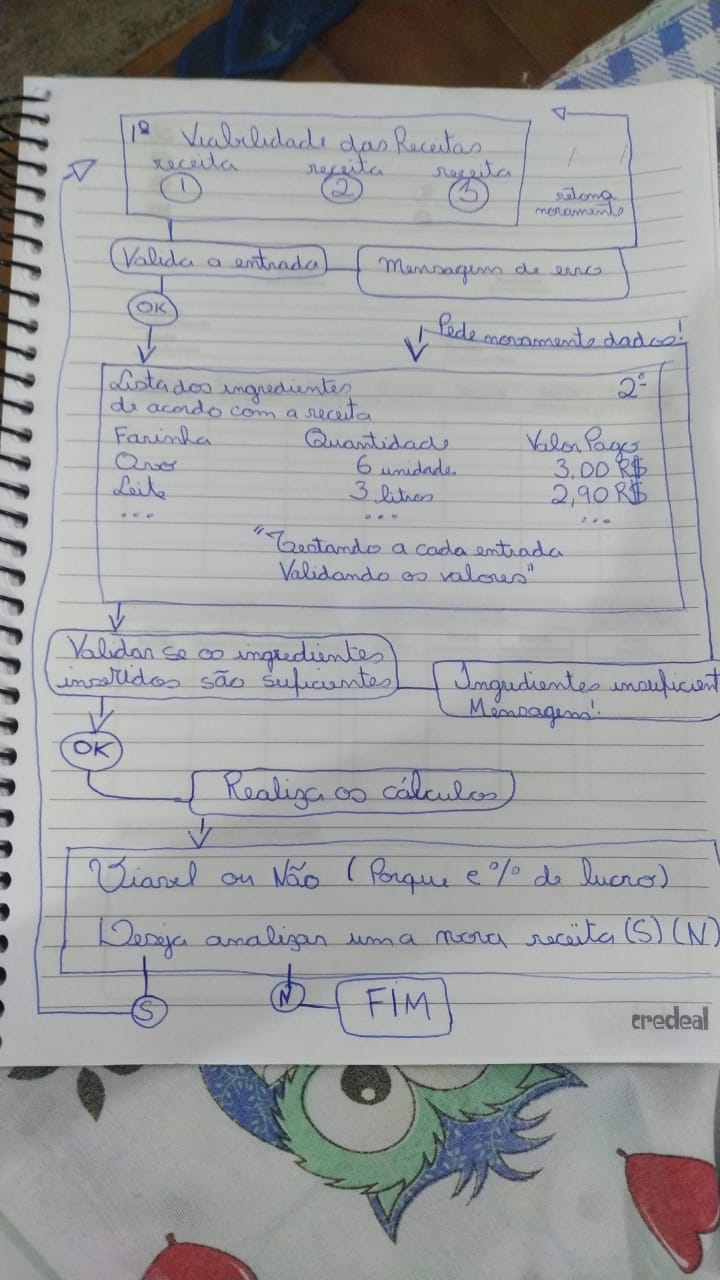 1º Viabilidade das Receitas
receita receita receita
1 2 3
retoma
novamente
Valida a entrada
Mensagem de erro
OK
Pede novamente dados!
Lista dos ingredientes 2º
de acordo com a receita
Farinha Quantidade Valor Pago
Ovo 6 unidade 3,00 R$
Leite 3 litros 2,90 R$
... ... ...
"Testando a cada entrada
Validando os valores"
Validar se os ingredientes
inseridos são suficientes
Ingredientes insuficient
Mensagem!
OK
Realiza os cálculos
Viavel ou Não (Porque e % de lucro)
Deseja analizar uma nova receita (S) (N)
S N FIM
credeal